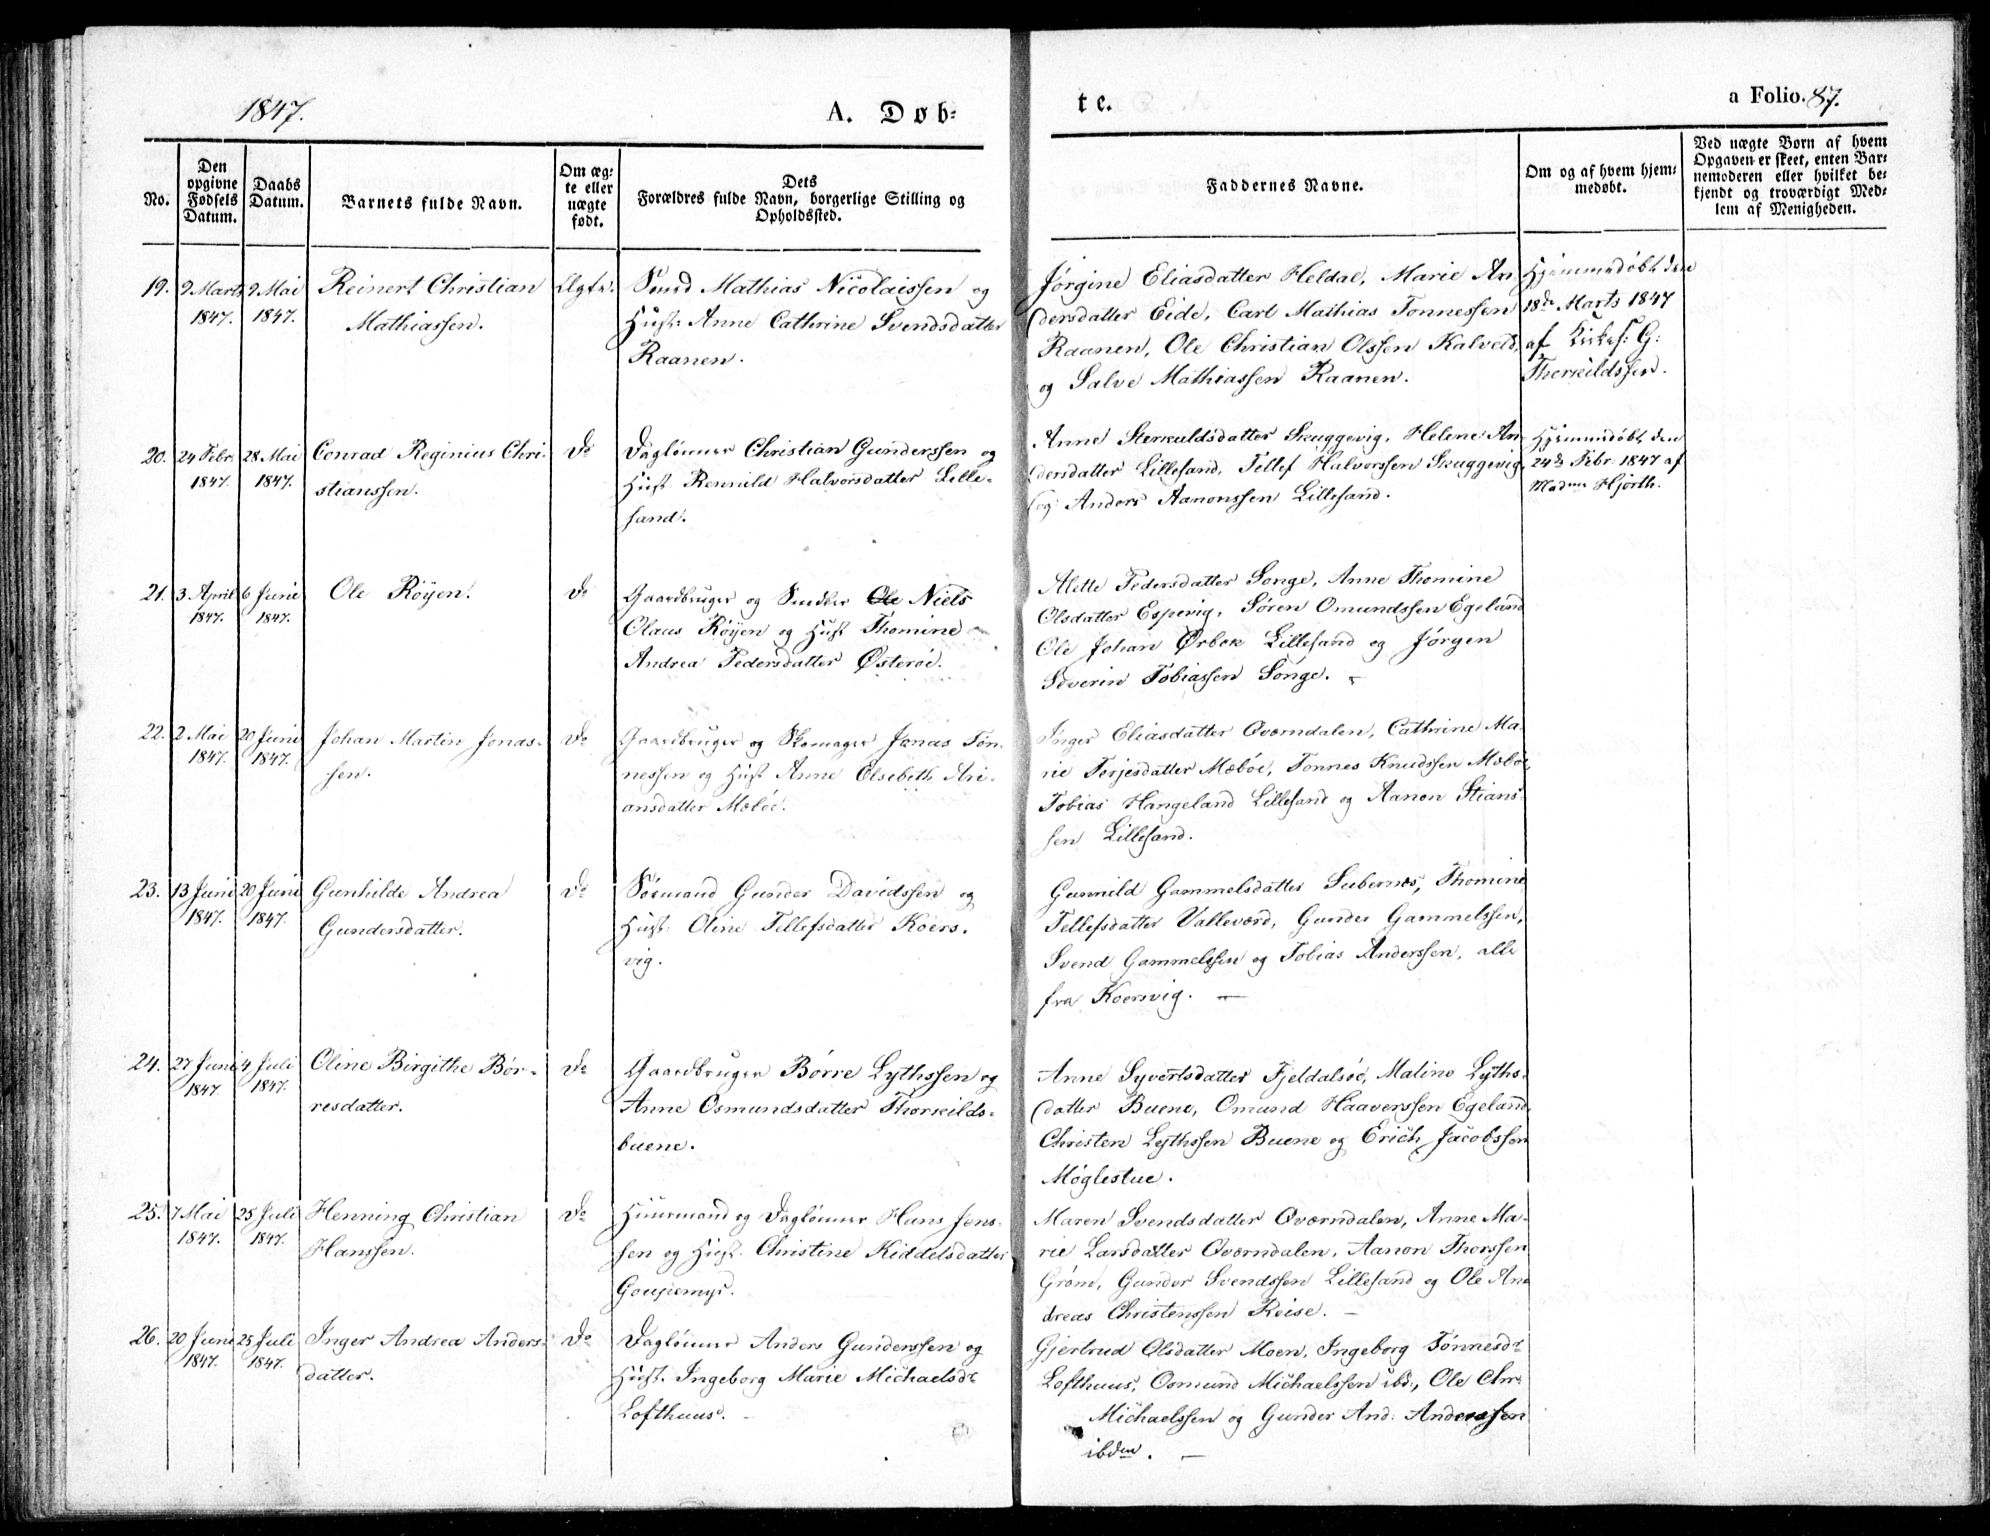 1847.
A. Døb-
te.
a Folio. 87.
No.
Den opgivne Fødsels Datum.
Daabs Datum.
Barnets fulde Navn.
Om æg-
te eller
uægte
født.
Dets
Forældres fulde Navn, borgerlige Stilling og
Opholdssted.
Faddernes Navne.
Om og af hvem hjem-
medøbt.
Ved uægte Børn af hvem
Opgaven er skeet, enten Bar-
nemoderen eller hvilket be-
kjendt og troværdigt Med-
lem af Menigheden.
19.
9 Marts
1847.
9 Mai
1847.
Reinert Christian
Mathiassen.
Ægte.
Smed Mathias Nicolaissen og
Hust: Anne Cathrine Svendsdatter
Raanen.
Jørgine Eliasdatter Heldal, Marie An-
dersdatter Eide, Carl Mathias Tønnessen
Raanen, Ole Christian Olssen Kalveld,
og Salve Mathiassen Raanen.
Hjemmedøbt den
18de Marts 1847
af Kirkes: G:
Therkildssen.
20.
24 Febr.
1847.
28 Mai
1847.
Conrad Reginius Chri-
stianssen.
Do
Daglønner Christian Gunderssen og
Hust Rennild Halvorsdatter Lille-
sand.
Anne Sterkuldsdatter Skuggevig, Helene An-
dersdatter Lillesand, Tellef Halvorssen Skuggevig
og Anders Aanonssen Lillesand.
Hjemmedøbt den
24de Febr. 1847 af
Madme Hjorth.
21.
3 April
1847.
6 Juni
1847.
Ole Røyen.
Do
Gaardbruger og Snedker Ole Niels
Olaus Røyen og Hust Thomine
Andrea Pedersdatter Østerøe.
Alette Pedersdatter Songe, Anne Thomine
Olsdatter Espevig, Søren Omundssen Egeland
Ole Johan Ørbek Lillesand og Jørgen
Severin Tobiassen Songe.
22.
2 Mai
1847.
20 Juni
1847.
Johan Martin Jonas-
sen.
Do
Gaardbruger og Skomager Jonas Tøn-
nessen og Hust Anne Elsebeth Ari-
ansdatter Mæbøe.
Inger Eliasdatter Qværndalen, Cathrine Ma-
rie Terjesdatter Mæbøe, Tønnes Knudssen Mæbøe,
Tobias Hangeland Lillesand og Aanon Stians-
sen Lillesand.
23.
13 Juni
1847.
20 Juni
1847.
Gunhilde Andrea
Gundersdatter.
Do
Sømand Gunder Davidssen og
Hust: Oline Tellefsdatter Koers-
vig.
Gunnild Gammelsdatter Subernes, Thomine
Tellefsdatter Valleværd, Gunder Gammelssen,
Svend Gammelssen og Tobias Anderssen, alle
fra Koersvig.
24.
27 Juni
1847.
4 Juli
1847.
Oline Birgithe Bør-
resdatter.
Do
Gaardbruger Børre Lythssen og
Anne Osmundsdatter Thorkilds-
buene.
Anne Syvertsdatter Fjeldalsøe, Maline Lyths-
datter Buene, Omund Haaverssen Egeland,
Christen Lythssen Buene og Erich Jacobssen
Møglestue.
25.
7 Mai
1847.
25 Juli
1847.
Henning Christian
Hanssen.
Do
Huusmand og Daglønner Hans Jens-
sen og Hust. Christine Kiddelsdatter
Goupemyr.
Maren Svendsdatter Qværndalen, Anne Ma-
rie Larsdatter Qværndalen, Aanon Thorssen
Grøm, Gunder Svendssen Lillesand og Ole An-
dreas Christenssen Reise.
26.
20 Juni
1847.
25 Juli
1847.
Inger Andrea Anders-
datter.
Do
Daglønner Anders Gunderssen og
Hust. Ingeborg Marie Michaelsdr
Lofthuus.
Gjertrud Olsdatter Moen, Ingeborg Tønnesdr
Lofthuus, Osmund Michaelssen ibd., Ole Chr.
Michaelssen og Gunder And: Anderssen
ibdm.